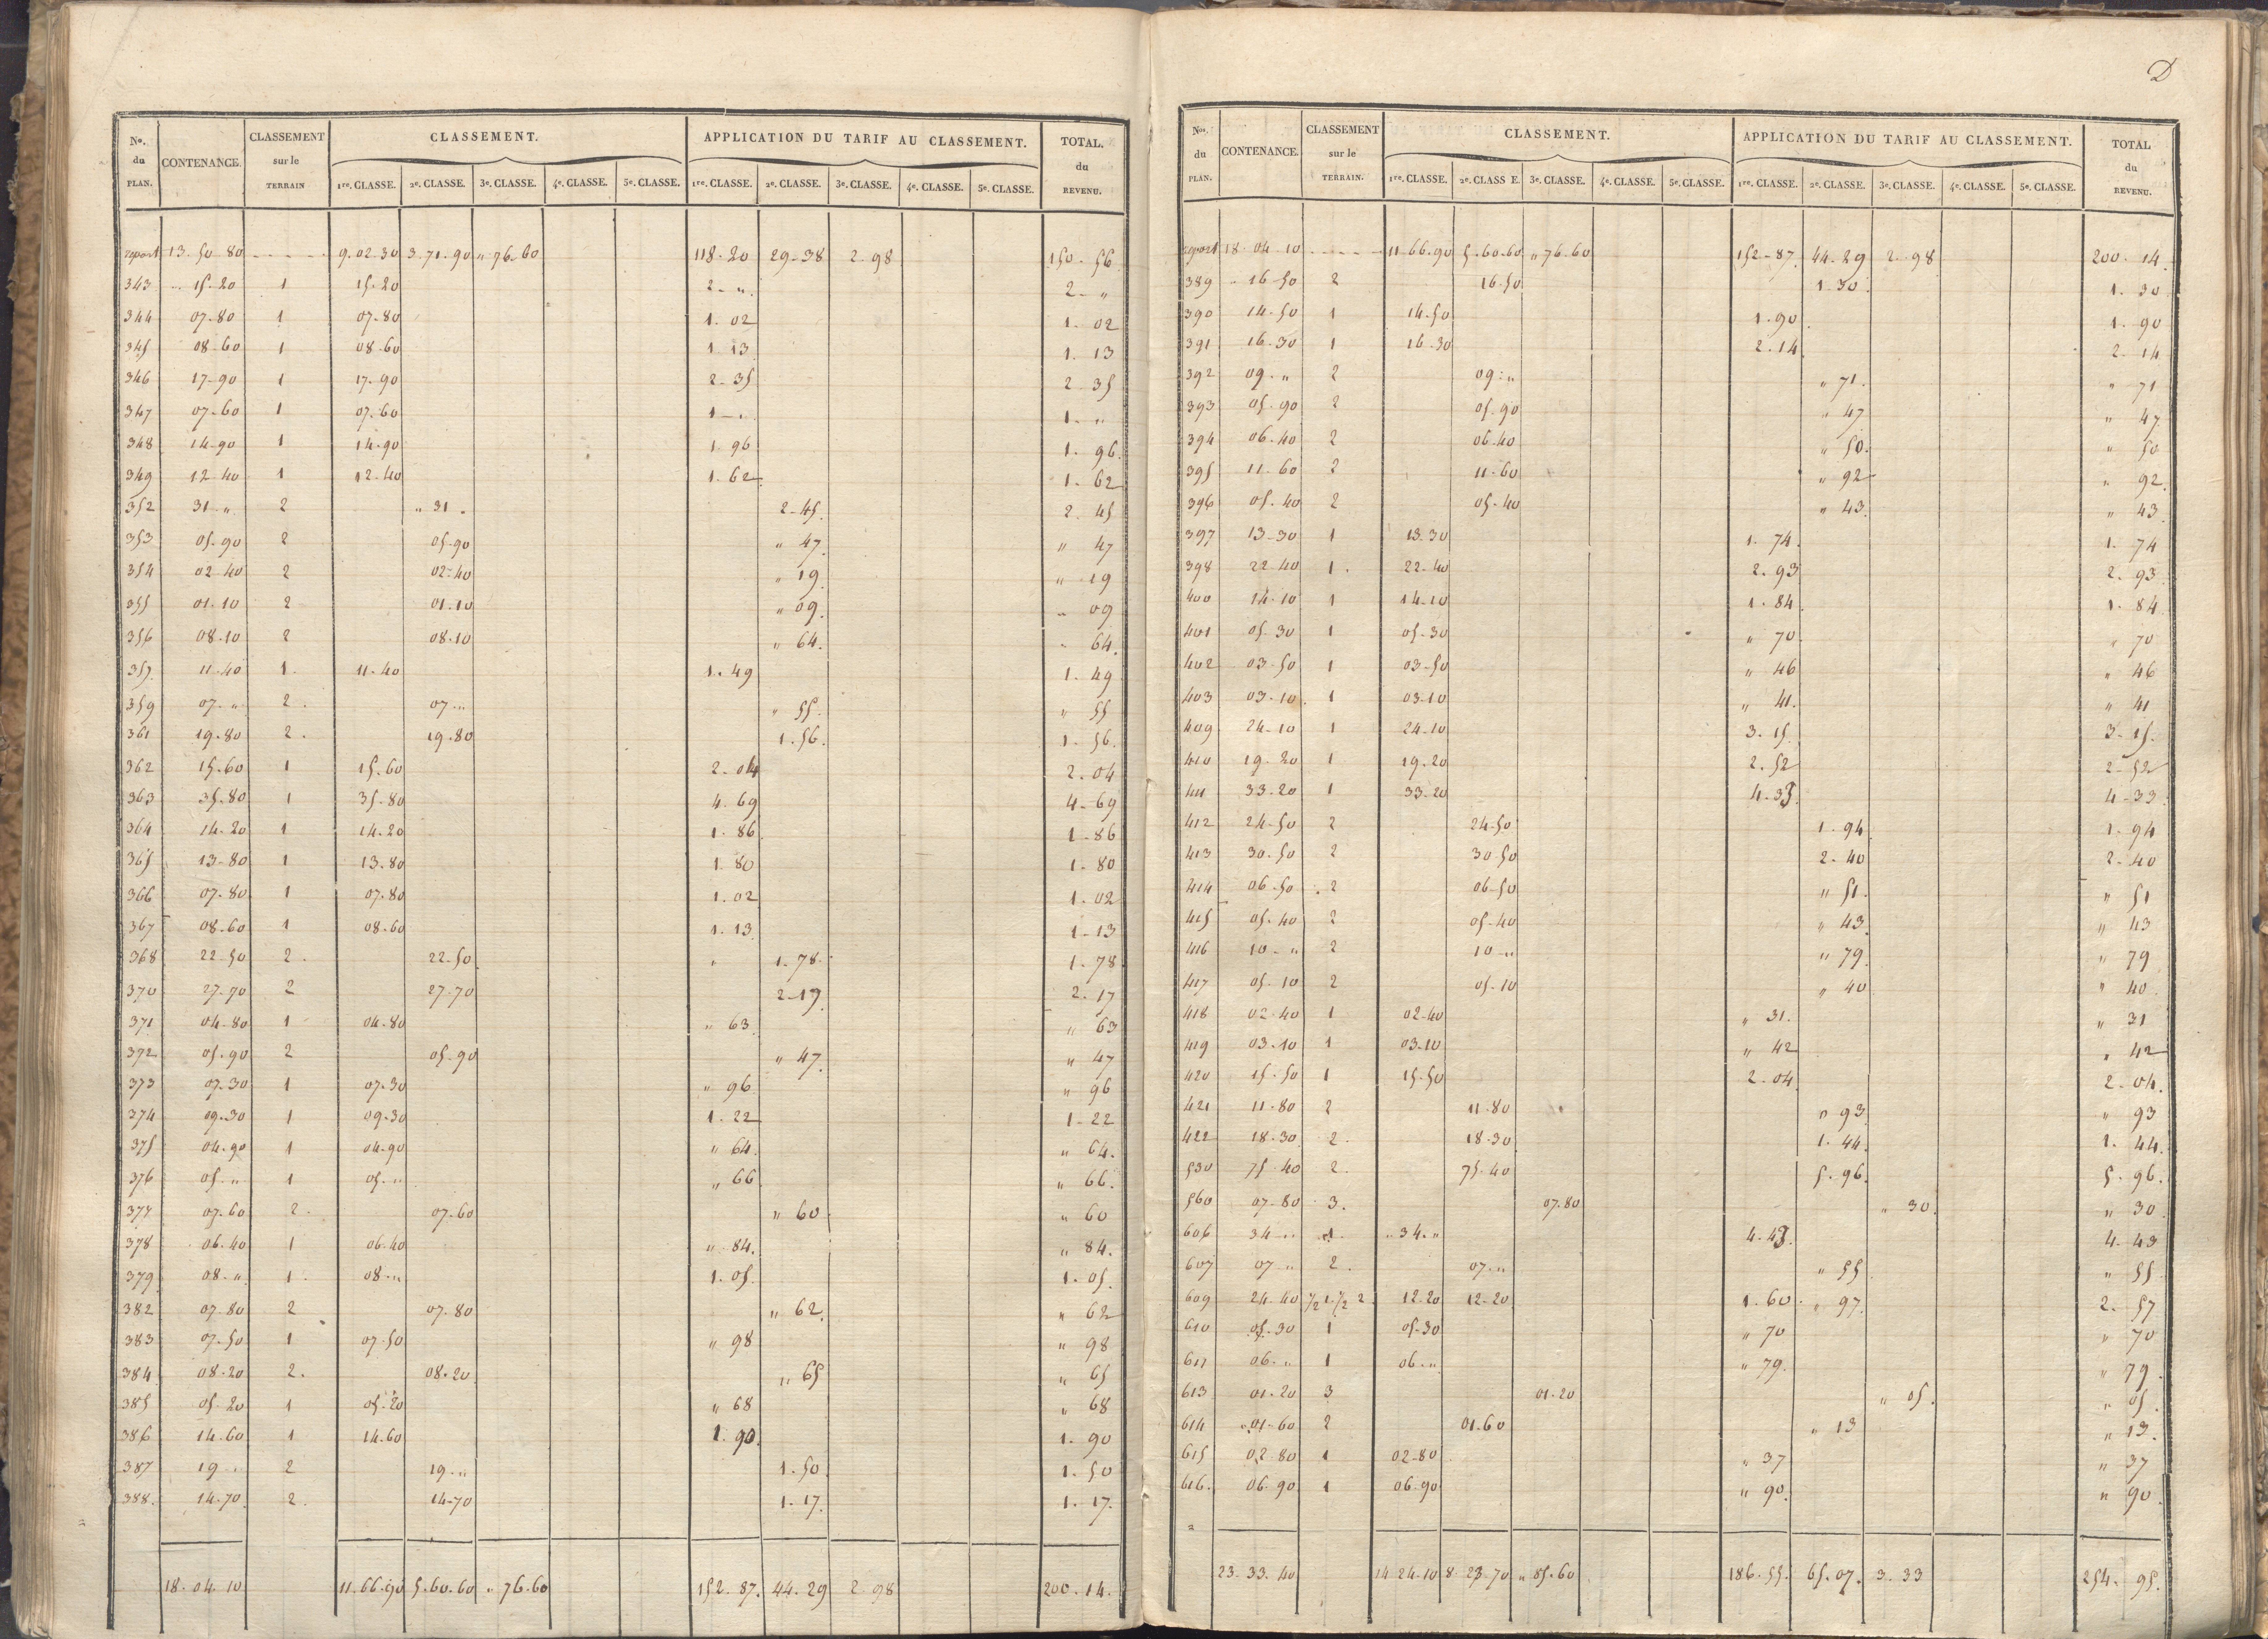 No. du PLAN. | CONTENANCE. | CLASSEMENT sur le TERRAIN | CLASSEMENT. 1re. CLASSE. 2e. CLASSE. 3e. CLASSE. 4e. CLASSE. 5e. CLASSE. | APPLICATION DU TARIF AU CLASSEMENT. 1re. CLASSE. 2e. CLASSE. 3e. CLASSE. 4e. CLASSE. 5e. CLASSE. | TOTAL. du REVENU.
report 13. 50 80 9. 02. 30 3. 71. 90 " 76. 60 118. 20 29-38 2-98 150. 56
343 15-20 1 15-20 2- " 2- "
344 07-80 1 07-80 1. 02 1. 02
345 08-60 1 08-60 1-13 1. 13
346 17-90 1 17-90 2-35 2-35
347 07-60 1 07-60 1- " 1. "
348 14-90 1 14-90 1. 96 1. 96
349 12-40 1 12-40 1. 62 1. 62
352 31 " 2 " 31 " 2-45 2. 45
353 05-90 2 05-90 " 47 " 47
354 02-40 2 02-40 " 19 " 19
355 01-10 2 01-10 " 09 " 09
356 08-10 2 08-10 " 64 " 64
357 11-40 1 11-40 1. 49 1. 49
359 07- " 2 07- " " 55 " 55
361 19-80 2 19-80 1. 56 1. 56
362 15-60 1 15-60 2-04 2. 04
363 35-80 1 35-80 4. 69 4-69
364 14-20 1 14-20 1. 86 1-86
365 13-80 1 13-80 1. 80 1. 80
366 07-80 1 07-80 1. 02 1. 02
367 08-60 1 08-60 1. 13 1-13
368 22-50 2 22-50 " 1-78 1. 78
370 27-70 2 27-70 2-17 2. 17
371 04-80 1 04-80 " 63 " 63
372 05-90 2 05-90 " 47 " 47
373 07-30 1 07-30 " 96 " 96
374 09-30 1 09-30 1. 22 1-22
375 04-90 1 04-90 " 64 " 64
376 05- " 1 05- " " 66 " 66
377 07-60 2 07-60 " 60 " 60
378 06-40 1 06-40 " 84 " 84
379 08- " 1 08- " 1. 05 1. 05
382 07-80 2 07-80 " 62 " 62
383 07-50 1 07-50 " 98 " 98
384 08-20 2 08-20 " 65 " 65
385 05-20 1 05-20 " 68 " 68
386 14-60 1 14-60 1. 90 1. 90
387 19 " 2 19- " 1. 50 1. 50
388 14-70 2 14-70 1-17 1. 17
18. 04. 10 11. 66. 90 5. 60. 60 " 76. 60 152. 87 44. 29 2-98 200. 14
D
Nos. du PLAN. | CONTENANCE. | CLASSEMENT sur le TERRAIN. | CLASSEMENT. 1re. CLASSE. 2e. CLASS E. 3e. CLASSE. 4e. CLASSE. 5e. CLASSE. | APPLICATION DU TARIF AU CLASSEMENT. 1re. CLASSE. 2e. CLASSE. 3e. CLASSE. 4e. CLASSE. 5e. CLASSE. | TOTAL du REVENU.
report 18. 04. 10 11. 66. 90 5. 60. 60 " 76. 60 152-87 44. 29 2-98 200. 14
389 " 16-50 2 16-50 1-30 1. 30
390 14-50 1 14-50 1. 90 1. 90
391 16-30 1 16-30 2. 14 2. 14
392 09- " 2 09- " " 71 " 71
393 05-90 2 05-90 " 47 " 47
394 06-40 2 06-40 " 50 " 50
395 11-60 2 11-60 " 92 " 92
396 05-40 2 05-40 " 43 " 43
397 13-30 1 13-30 1. 74 1. 74
398 22-40 1 22-40 2. 93 2. 93
400 14-10 1 14-10 1. 84 1. 84
401 05-30 1 05-30 " 70 " 70
402 03-50 1 03-50 " 46 " 46
403 03-10 1 03-10 " 41 " 41
409 24-10 1 24-10 3. 15 3-15
410 19-20 1 19-20 2. 52 2-52
411 33-20 1 33-20 4. 33 4-33
412 24-50 2 24-50 1. 94 1. 94
413 30-50 2 30-50 2. 40 2-40
414 06-50 2 06-50 " 51 " 51
415 05-40 2 05-40 " 43 " 43
416 10- " 2 10- " " 79 " 79
417 05-10 2 05-10 " 40 " 40
418 02-40 1 02-40 " 31 " 31
419 03-10 1 03-10 " 42 " 42
420 15-50 1 15-50 2-04 2-04
421 11-80 2 11-80 " 93 " 93
422 18-30 2 18-30 1. 44 1. 44
530 75-40 2 75-40 5. 96 5. 96
560 07-80 3 07-80 " 30 " 30
606 34 " 1 " 34 " 4. 43 4-43
607 07 " 2 07- " " 55 " 55
609 24-40 1/2 1. 1/2 2 12-20 12-20 1. 60 " 97 2. 57
610 05-30 1 05-30 " 70 " 70
611 06- " 1 06- " " 79 " 79
613 01-20 3 01-20 " 05 " 05
614 01-60 2 01-60 " 13 " 13
615 02 80 1 02-80 " 37 " 37
616 06-90 1 06-90 " 90 " 90
23. 33. 40 14. 24. 10 8. 23. 70 " 85. 60 186. 55 65. 07 3. 33 254. 95